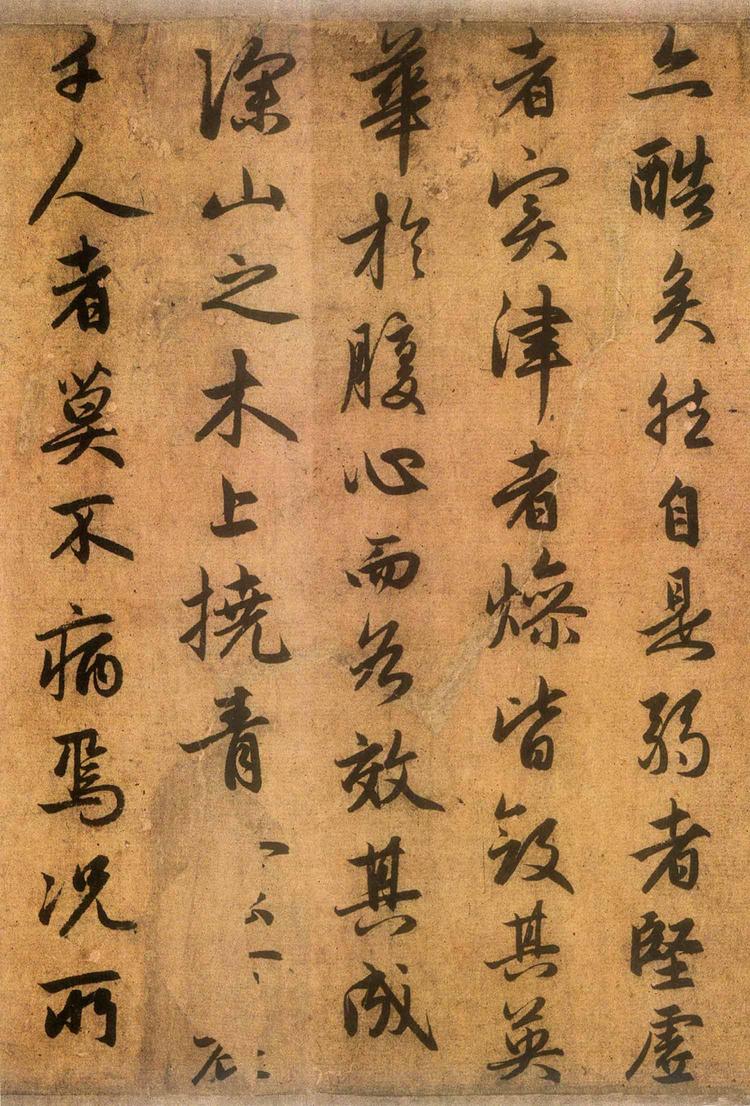 亦酷矣然自是弱者堅虛
者实津者燥皆斂其英
華於腹心而各效其成
深山之木上撓青
千人者莫不病焉況所